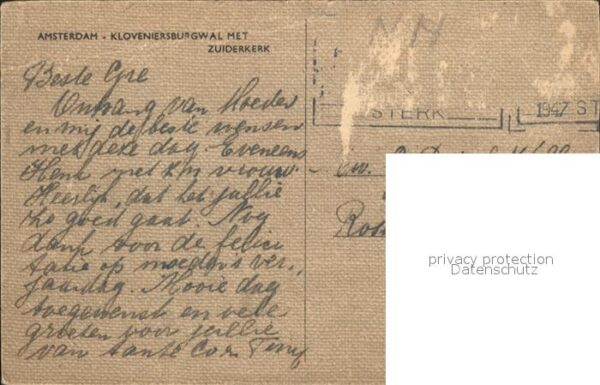 AMSTERDAM - KLOVENIERSBURGWAL MET
ZUIDERKERK
N H
STERK
1947 ST
Beste Core
Ontvang van Moeder
en mij de beste wensen
met deze dag. Eveneens
Henk met z'n vrouw.
Heerlijk, dat het jullie
zo goed gaat. Nog
dank voor de felici
tatie op moeder's ver„
jaardag. Mooie dag
toegewenst en vele
groeten voor jullie
van tante Co
privacy protection
Datenschutz